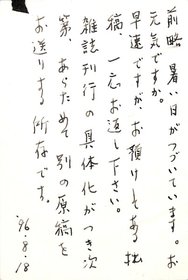 前略 暑い日がつづいています。お
元気ですか。
早速ですが、お預けしてある拙
稿一応お返し下さい。
雑誌刊行の具体化がつき次
第、あらためて別の原稿を
お送りする所存です。
'96.8.18